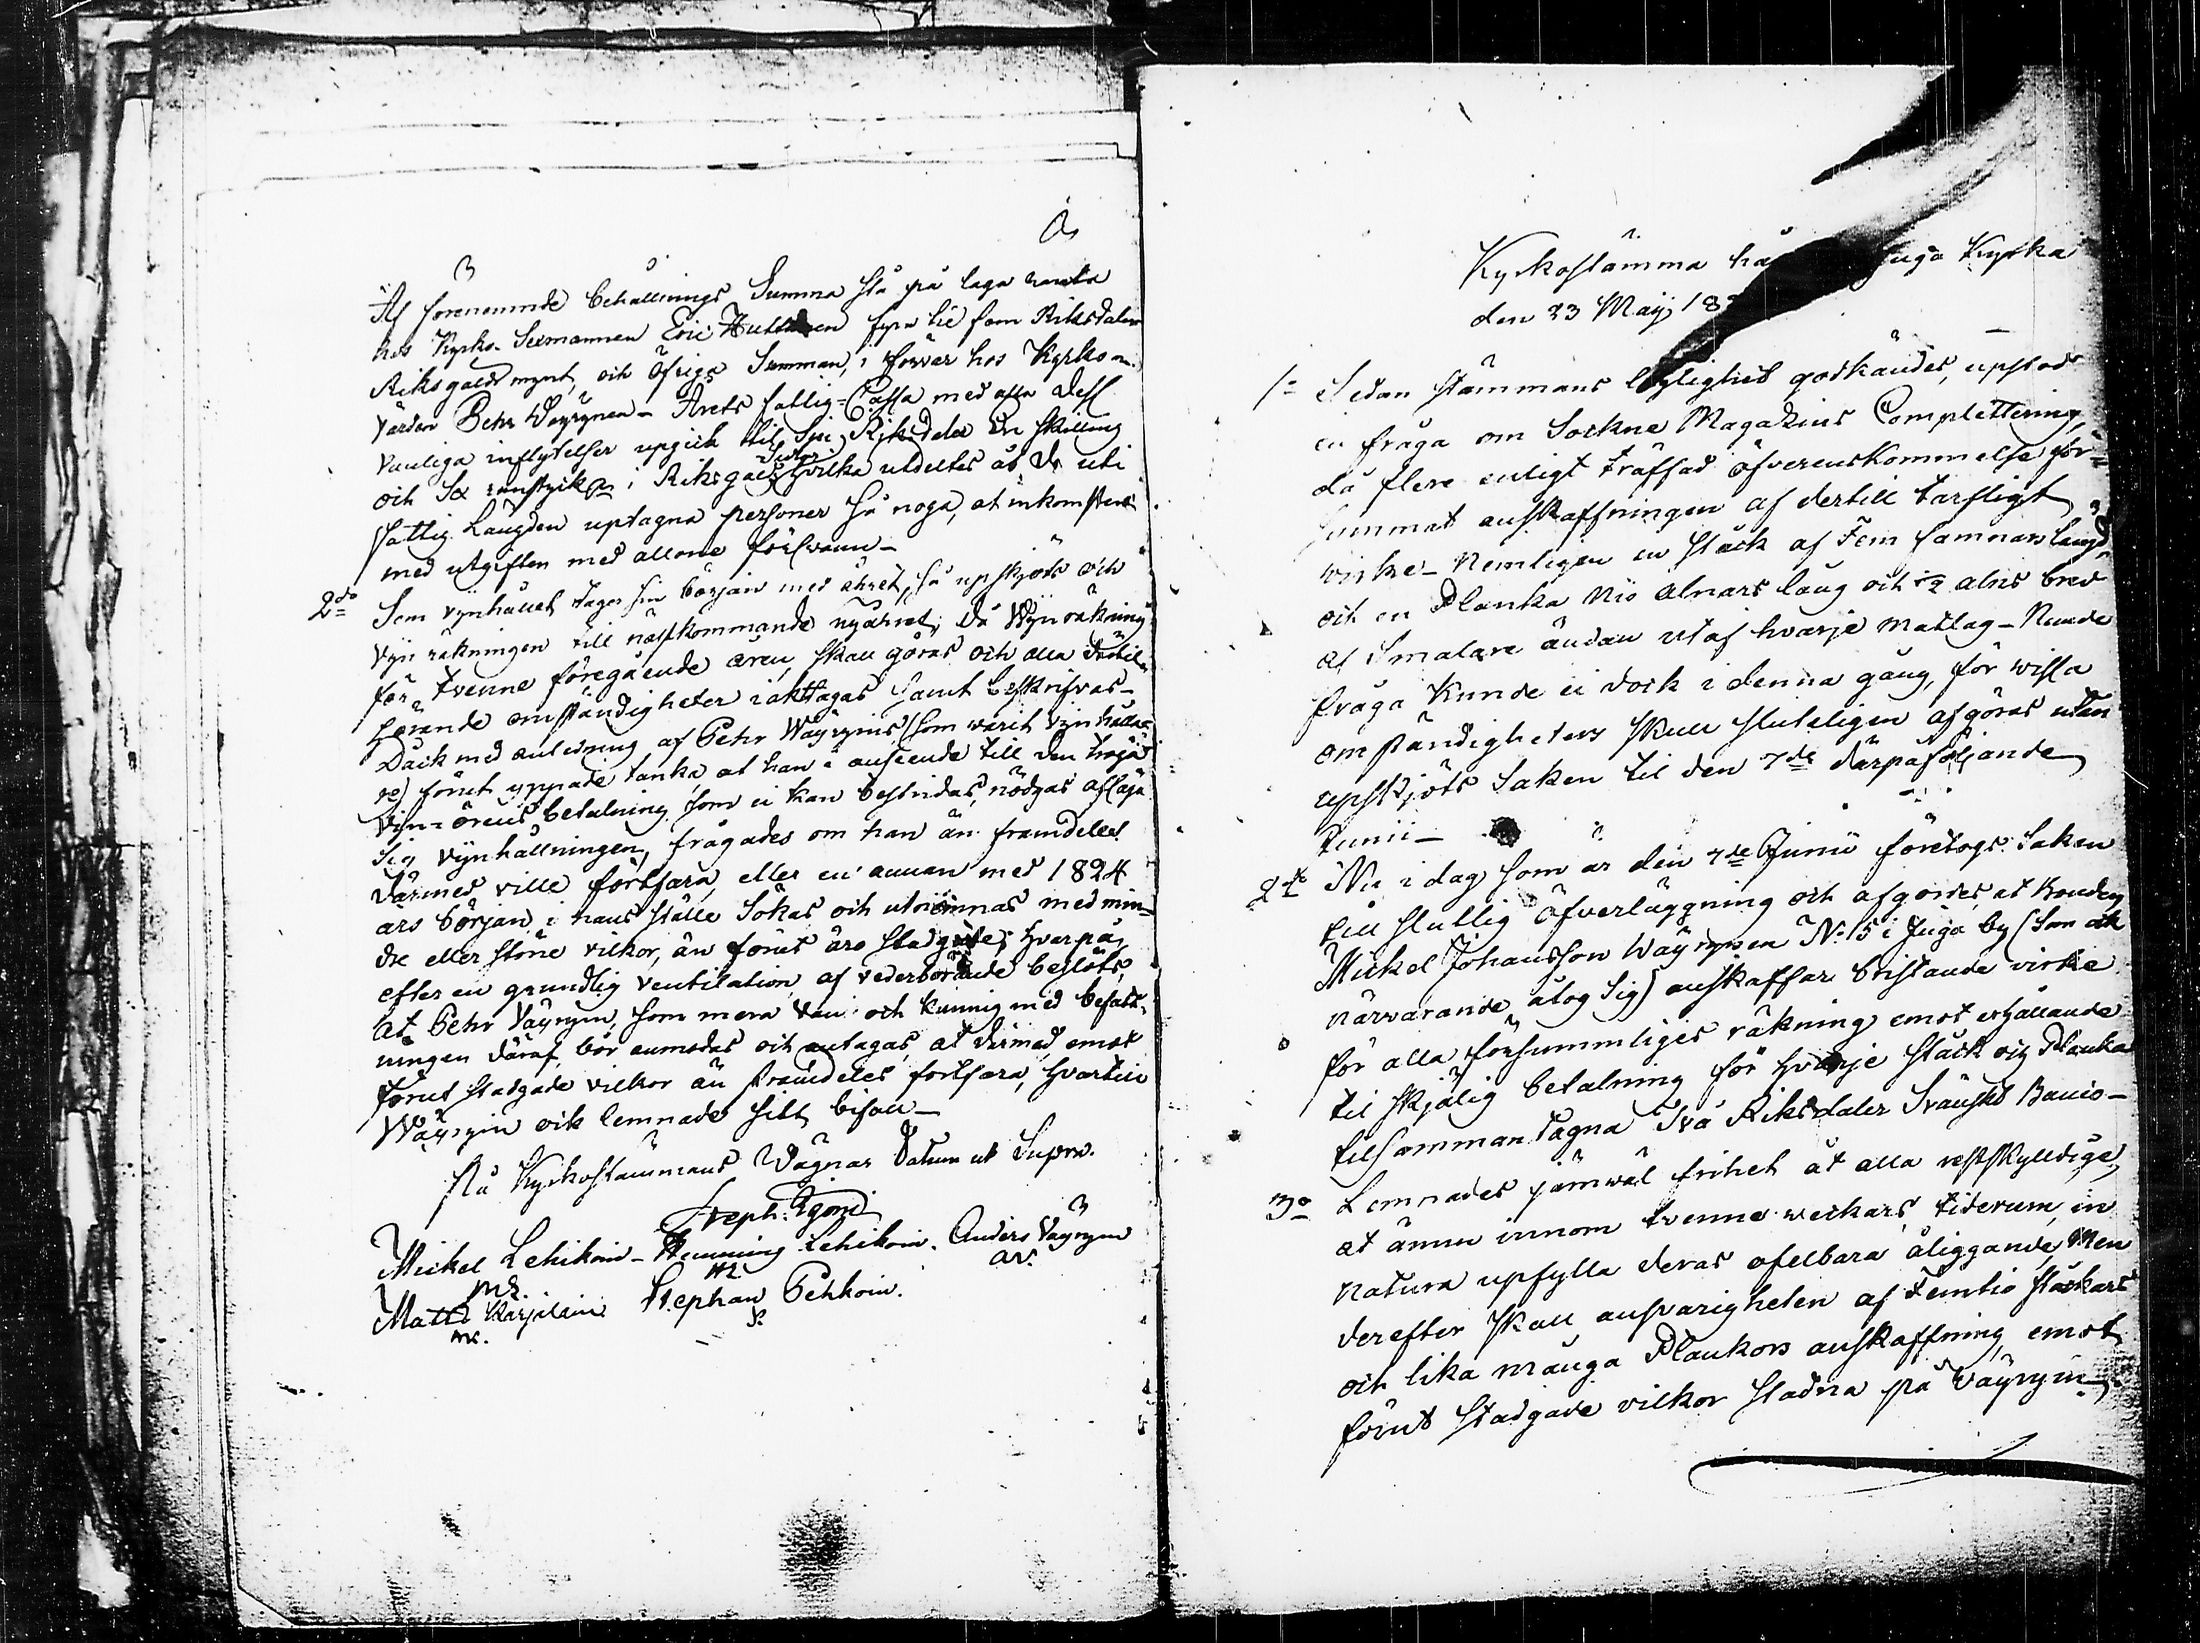 Af förenemnde behållnings Summa stå på laga ranta
hos Kyrko-Sexmannen Eric fyratie fem Riksdaler
Riksgälds mynt, och öfriga Summan, i förvar hos Kyrko-
värden Pehr Väyrynen - Årets fattig-Cassa med alla dess
vanliga inflytelser upgick til Sju Riksdaler En skilling
och Sex i Riksgälds Sedlar hvilka utdeltes åt de uti
fattig Längden uptagna personer så noga, at inkomsten
med utgiften med allone försvann -
2do Som vijnhållet tager sin början med åhret, så upskjöts och
Vijn räkningen till nästkommande nyåhret, då Vijnräkning
för tvenne föregående åren, skall göras och alla dertil
hörande omständigheter iakttagas samt beskrifvas -
Dock med anledning af Pehr Wäyryns (som warit Vijnhålla-
re) förut yppade tanka, at han i anseende till den tröga
Vijn-örens betalning som ei kan bestridas, nödgas afsäga
Sig vijnhållningen, frågades om han än framdeles
därmed ville fortfara, eller en annan med 1824
års början i hans ställe Sökas och utnämnas med min-
dre eller större vilkor, än förut äro stadgade; hvarpå,
efter en grundlig ventilation af vederbörande beslöts,
at Pehr Väyryn, som mera van och kunnig med befatt-
ningen däraf, bör anmodas och antagas, at därmed emot
förut stadgade vilkor än framdeles fortfara, hvartill
Wäyryin ock lemnade sitt bifall -
På Kyrkostämmans Vägnar Datum ut Supra.
Steph:
Mickel Lehikoin - Hemming Lehikoin. Anders Väyryn
Matts Karjalain Stephan Pehkoin.
Kyrkostämma hå Juga Kyrka
den 23 Maij 18
1= Sedan Stämmans laglighet godkändes, upstod
en fråga om Sockne Magazins Complettering,
då flere enligt träffad öfverenskommelse för-
summat anskaffningen af dertill tarfligt
virke - Nemligen en stock af Fem famnars längd,
och en Planka Nio alnars lång och 1/2 alns bred
at Smalare ändan utaf hvarje matlag - Nämde
fråga kunde ei dock i denna gång, för wissa
omständigheters skull sluteligen afgöras utan
upskjöts Saken til den 7de därpåföljande
Junii -
2do Nu i dag som är den 7de Junii företogs Saken
till slutlig öfverläggning och afgordes, at Bonden
Mickel Johansson Wäyrynen No 15 i Juga by (Som ock
närvarande åtog Sig) anskaffar bristande virke
för alla försummliges räkning emot erhållande
til skjälig betalning för hvarje stock och Planka
tilsamman tagna Två Riksdaler Svänskt Banco -
3o Lemnades jämväl frihet åt alla restskylldige,
at ännu innom tvenne weckars tiderum, in
natura upfylla deras ofelbara åliggande, Men
derefter skall answarigheten af Femtio stockars
och lika många Plankors anskaffning emot
förut stadgade vilkor stadna på Väyryin -